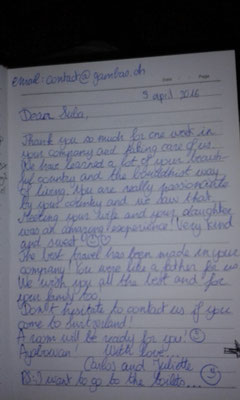 email: contact@gambao.ch
Date : Page :
3 april 2016
Dear Suba,
Thank you so much for one week in
your company and taking care of us.
We have learned a lot of your beauti-
ful country and the bouddhist way
of living. You are really passionate
by your country and we saw that.
Meeting your wife and your daughter
was an amazing experience! Very kind
and sweet!
The best travel has been made in your
company! You were like a father for us.
We wish you all the best and for
your family too.
Don't hesitate to contact us if you
come to Switzerland!
A room will be ready for you!
Ayubowan! With love,
Carlos and Juliette
PS: I want to go to the toilets...